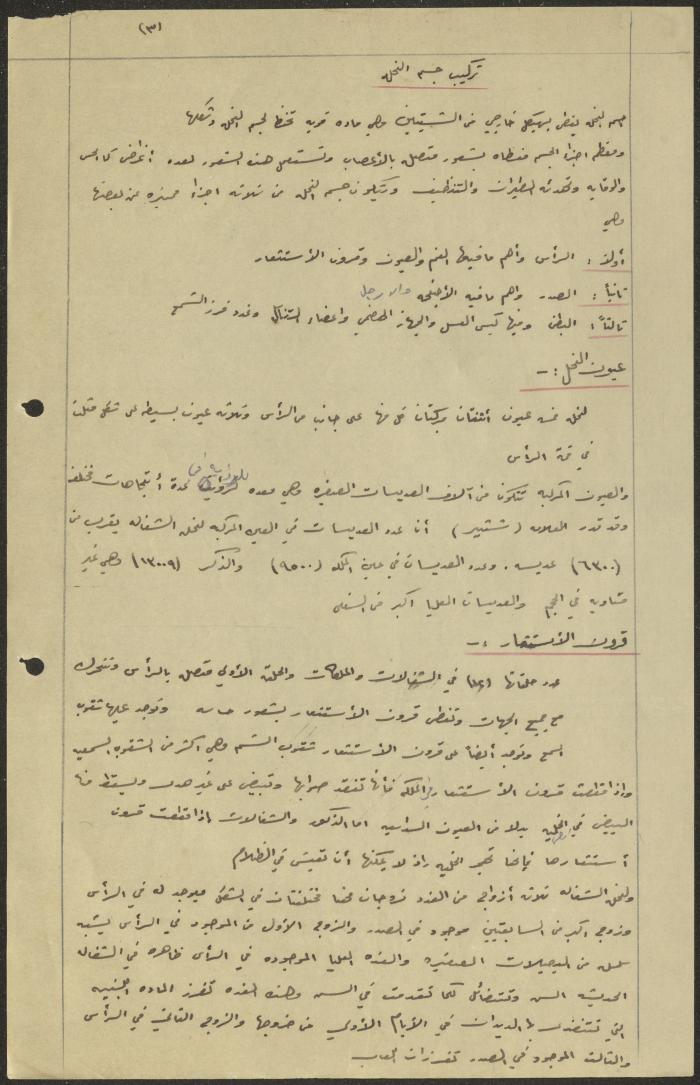 (٣)
تركيب جسم النحله
جسم النحله يغطى بهيكل خارجي من الشيتين وهي ماده قويه تحفظ لجسم النحله وشكلها
ومعظم اجزاء الجسم مغطاه بشعور متصله بالأعصاب وتستعمل هذه الشعور لعده أغراض كالحس
والوقايه وتهدئه الطيران والتنظيف ويتكون جسم النحله من ثلاثه اجزاء مميزه عن بعضها
وهي
أولاً : الرأس وأهم ما فيها الفم والعيون وقرون الأستشعار
ثانياً : الصدر واهم ما فيه الأجنحه والارجل
ثالثاً : البطن وفيها كيس العسل والجهاز الهضمي واعضاء التناسل وغدد فرز الشمع
عيون النحل : –
للنحله خمسه عيون أثنتان مركبتان كل منها على جانب من الرأس وثلاثه عيون بسيطه على شكل مثلث
في قمة الرأس
والعيون المركبه تتكون من آلاف العديسات الصغيره وهي معده للرؤيه في عدة أتجاهات مختلفه
وقد قدر العلامه (شتير) أن عدد العديسات في العين المركبه للنحله الشغاله يقرب من
(٦٣٠٠) عديسه . وعدد العديسات في عين الملكه (٩٥٠٠) والذكر (١٣٠٠٩) وهي غير
متساويه في الحجم والعديسات العليا اكبر من السفلى
قرون الأستشعار : –
عدد حلقاتها في الشغالات والملكات والحلقه الأولى متصله بالرأس وتتحرك
مع جميع الجهات وتغطى قرون الأستشعار بشعور حاسه وتوجد عليها ثقوب
السمع وتوجد أيضاً على قرون الاستشعار ثقوب الشم وهي اكثر من الثقوب السمعيه
واذا قطعت قرون الأستشعار في الملكه فأنها تفقد صوابها وتبيض على غير هدى ويسقط منها
البيض في الخليه بدلا من العيون السداسيه اما الذكور والشغالات اذا قطعت قرون
أستشعارها فإنها تهجر الخليه إذ لا يمكنها أن تعيش في الظلام
وللنحله الشغاله ثلاثه أزواج من الغدد زوجان منها مختلفتان في الشكل ويوجد له في الرأس
وزوج اكبر من السابقتين موجود في الصدر والزوج الأول من الموجود في الرأس يشبه
سلسله من البصيلات الصغيره والغده العليا الموجوده في الرأس ظاهره في الشغاله
الحديثه السن وتتضائل كلما تقدمت في السن وهذه الغده تفرز الماده الجبنيه
التي تتغذى بها الديدان في الأيام الأولى من خروجها والزوج الثاني في الرأس
والثالث الموجود في الصدر تفرزان اللعاب